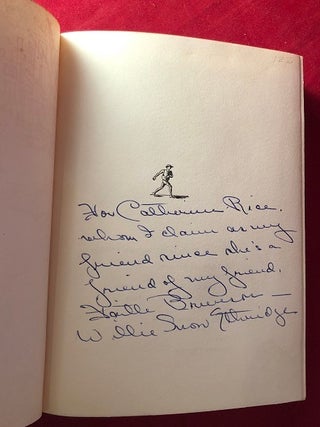 For Catherine Rice,
whom I claim as my
friend since she's a
friend of my friend,
Willie Snow Ethridge